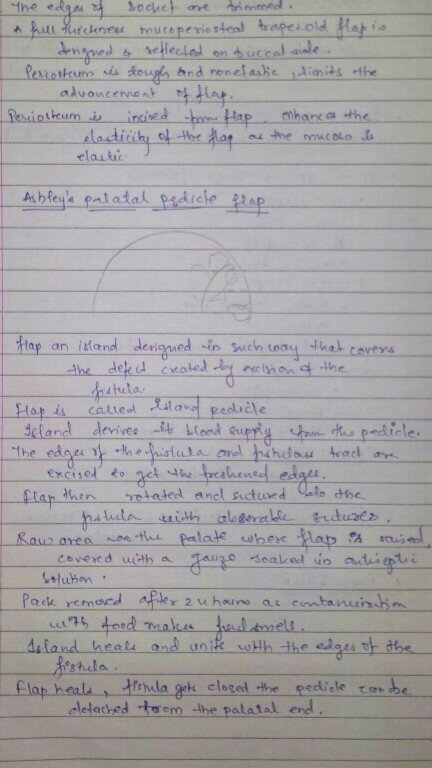 The edges of socket are trimmed.
A full thickness mucoperiosteal trapezoid flap is
designed & reflected on buccal side.
Periosteum is tough and nonelastic, limits the
advancement of flap.
Periosteum is incised from flap, enhances the
elasticity of the flap as the mucosa is
elastic.
Ashley's palatal pedicle flap
Flap an island designed in such way that covers
the defect created by excision of the
fistula
Flap is called Island pedicle
Island derives its blood supply from the pedicle.
The edges of the fistula and fistulous tract are
excised to get the freshened edges.
Flap then rotated and sutured into the
fistula with absorable sutures.
Raw area on the palate where flap is raised,
covered with a gauze soaked in antiseptic
solution.
Pack removed after 24 hours as contamination
with food makes foul smell.
Island heals and units with the edges of the
fistula.
Flap heals, fistula gets closed the pedicle can be
detached from the palatal end.